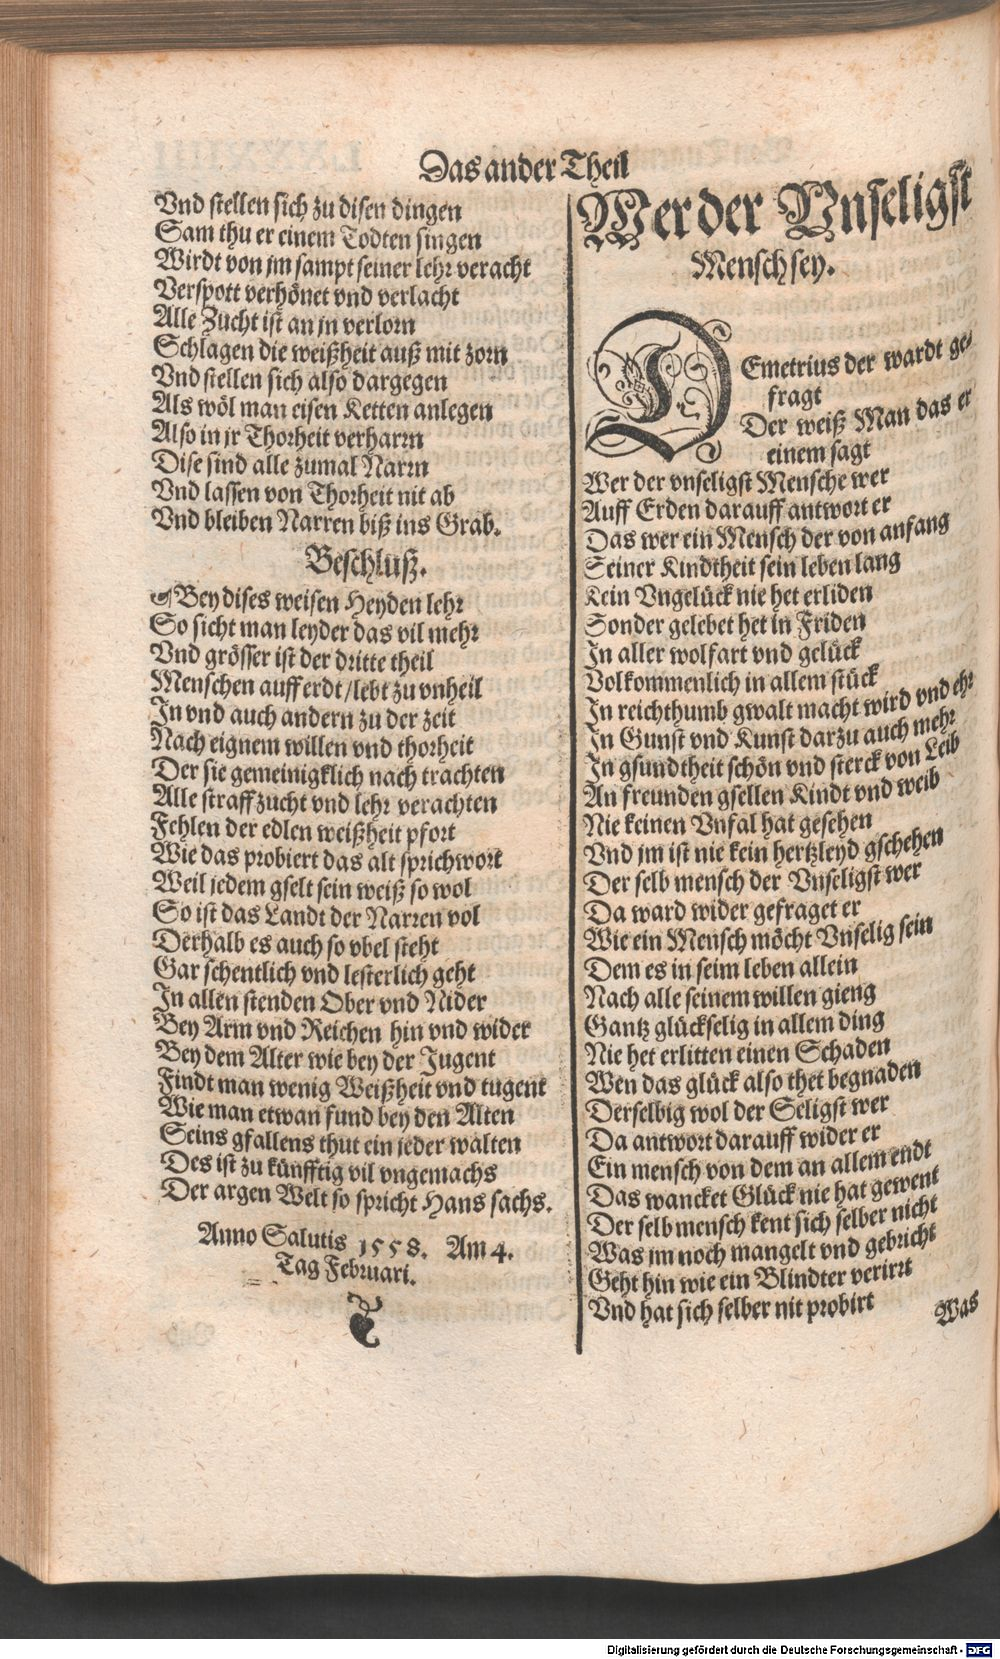 Das ander Theil
Vnd stellen sich zu disen dingen
Sam thu er einem Todten singen
Wirdt von jm sampt seiner lehr veracht
Verspott verhönet vnd verlacht
Alle Zucht ist an jn verlorn
Schlagen die weißheit auß mit zorn
Vnd stellen sich also dargegen
Als wöl man eisen Ketten anlegen
Also in jr Thorheit verharrn
Dise sind alle zumal Narrn
Vnd lassen von Thorheit nit ab
Vnd bleiben Narren biß ins Grab.
Beschluß.
Bey dises weisen Heyden lehr
So sicht man leyder das vil mehr
Vnd grösser ist der dritte theil
Menschen auff erdt/lebt zu vnheil
In vnd auch andern zu der zeit
Nach eignem willen vnd thorheit
Der sie gemeinigklich nach trachten
Alle straff zucht vnd lehr verachten
Fehlen der edlen weißheit pfort
Wie das probiert das alt sprichwort
Weil jedem gselt sein weiß so wol
So ist das Landt der Narren vol
Derhalb es auch so vbel steht
Gar schentlich vnd lesterlich geht
In allen stenden Ober vnd Nider
Bey Arm vnd Reichen hin vnd wider
Bey dem Alter wie bey der Jugent
Findt man wenig Weißheit vnd tugent
Wie man etwan fund bey den Alten
Seins gfallens thut ein jeder walten
Des ist zu künfftig vil vngemachs
Der argen Welt so spricht Hans sachs.
Anno Salutis 1558. Am 4.
Tag Februari.
Wer der Vnseligst
Mensch sey.
DEmetrius der wardt ge-
fragt
Der weiß Man das er
einem sagt
Wer der vnseligst Mensche wer
Auff Erden darauff antwort er
Das wer ein Mensch der von anfang
Seiner Kindtheit sein leben lang
Kein Vngelück nie het erliden
Sonder gelebet het in Friden
In aller wolfart vnd gelück
Volkommenlich in allem stück
In reichthumb gwalt macht wird vnd ehr
In Gunst vnd Kunst darzu auch mehr
In gsundtheit schön vnd sterck von Leib
An freunden gsellen Kindt vnd weib
Nie keinen Vnfal hat gesehen
Vnd jm ist nie kein hertzleyd gschehen
Der selb mensch der Vnseligst wer
Da ward wider gefraget er
Wie ein Mensch möcht Vnselig sein
Dem es in seim leben allein
Nach alle seinem willen gieng
Gantz glückselig in allem ding
Nie het erlitten einen Schaden
Wen das glück also thet begnaden
Derselbig wol der Seligst wer
Da antwort darauff wider er
Ein mensch von dem an allem endt
Das wancket Glück nie hat gewent
Der selb mensch kent sich selber nicht
Was jm noch mangelt vnd gebricht
Geht hin wie ein Blindter verirrt
Vnd hat sich selber nit probirt
Was
Digitalisierung gefördert durch die Deutsche Forschungsgemeinschaft - DFG